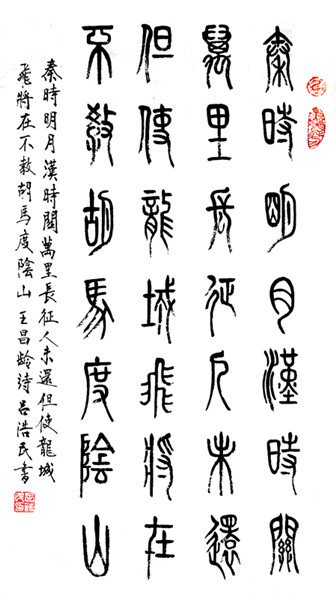 秦時明月漢時關
萬里長征人未還
但使龍城飛將在
不教胡馬度陰山
秦時明月漢時關萬里長征人未還但使龍城
飛將在不教胡馬度陰山王昌齡詩呂浩民書